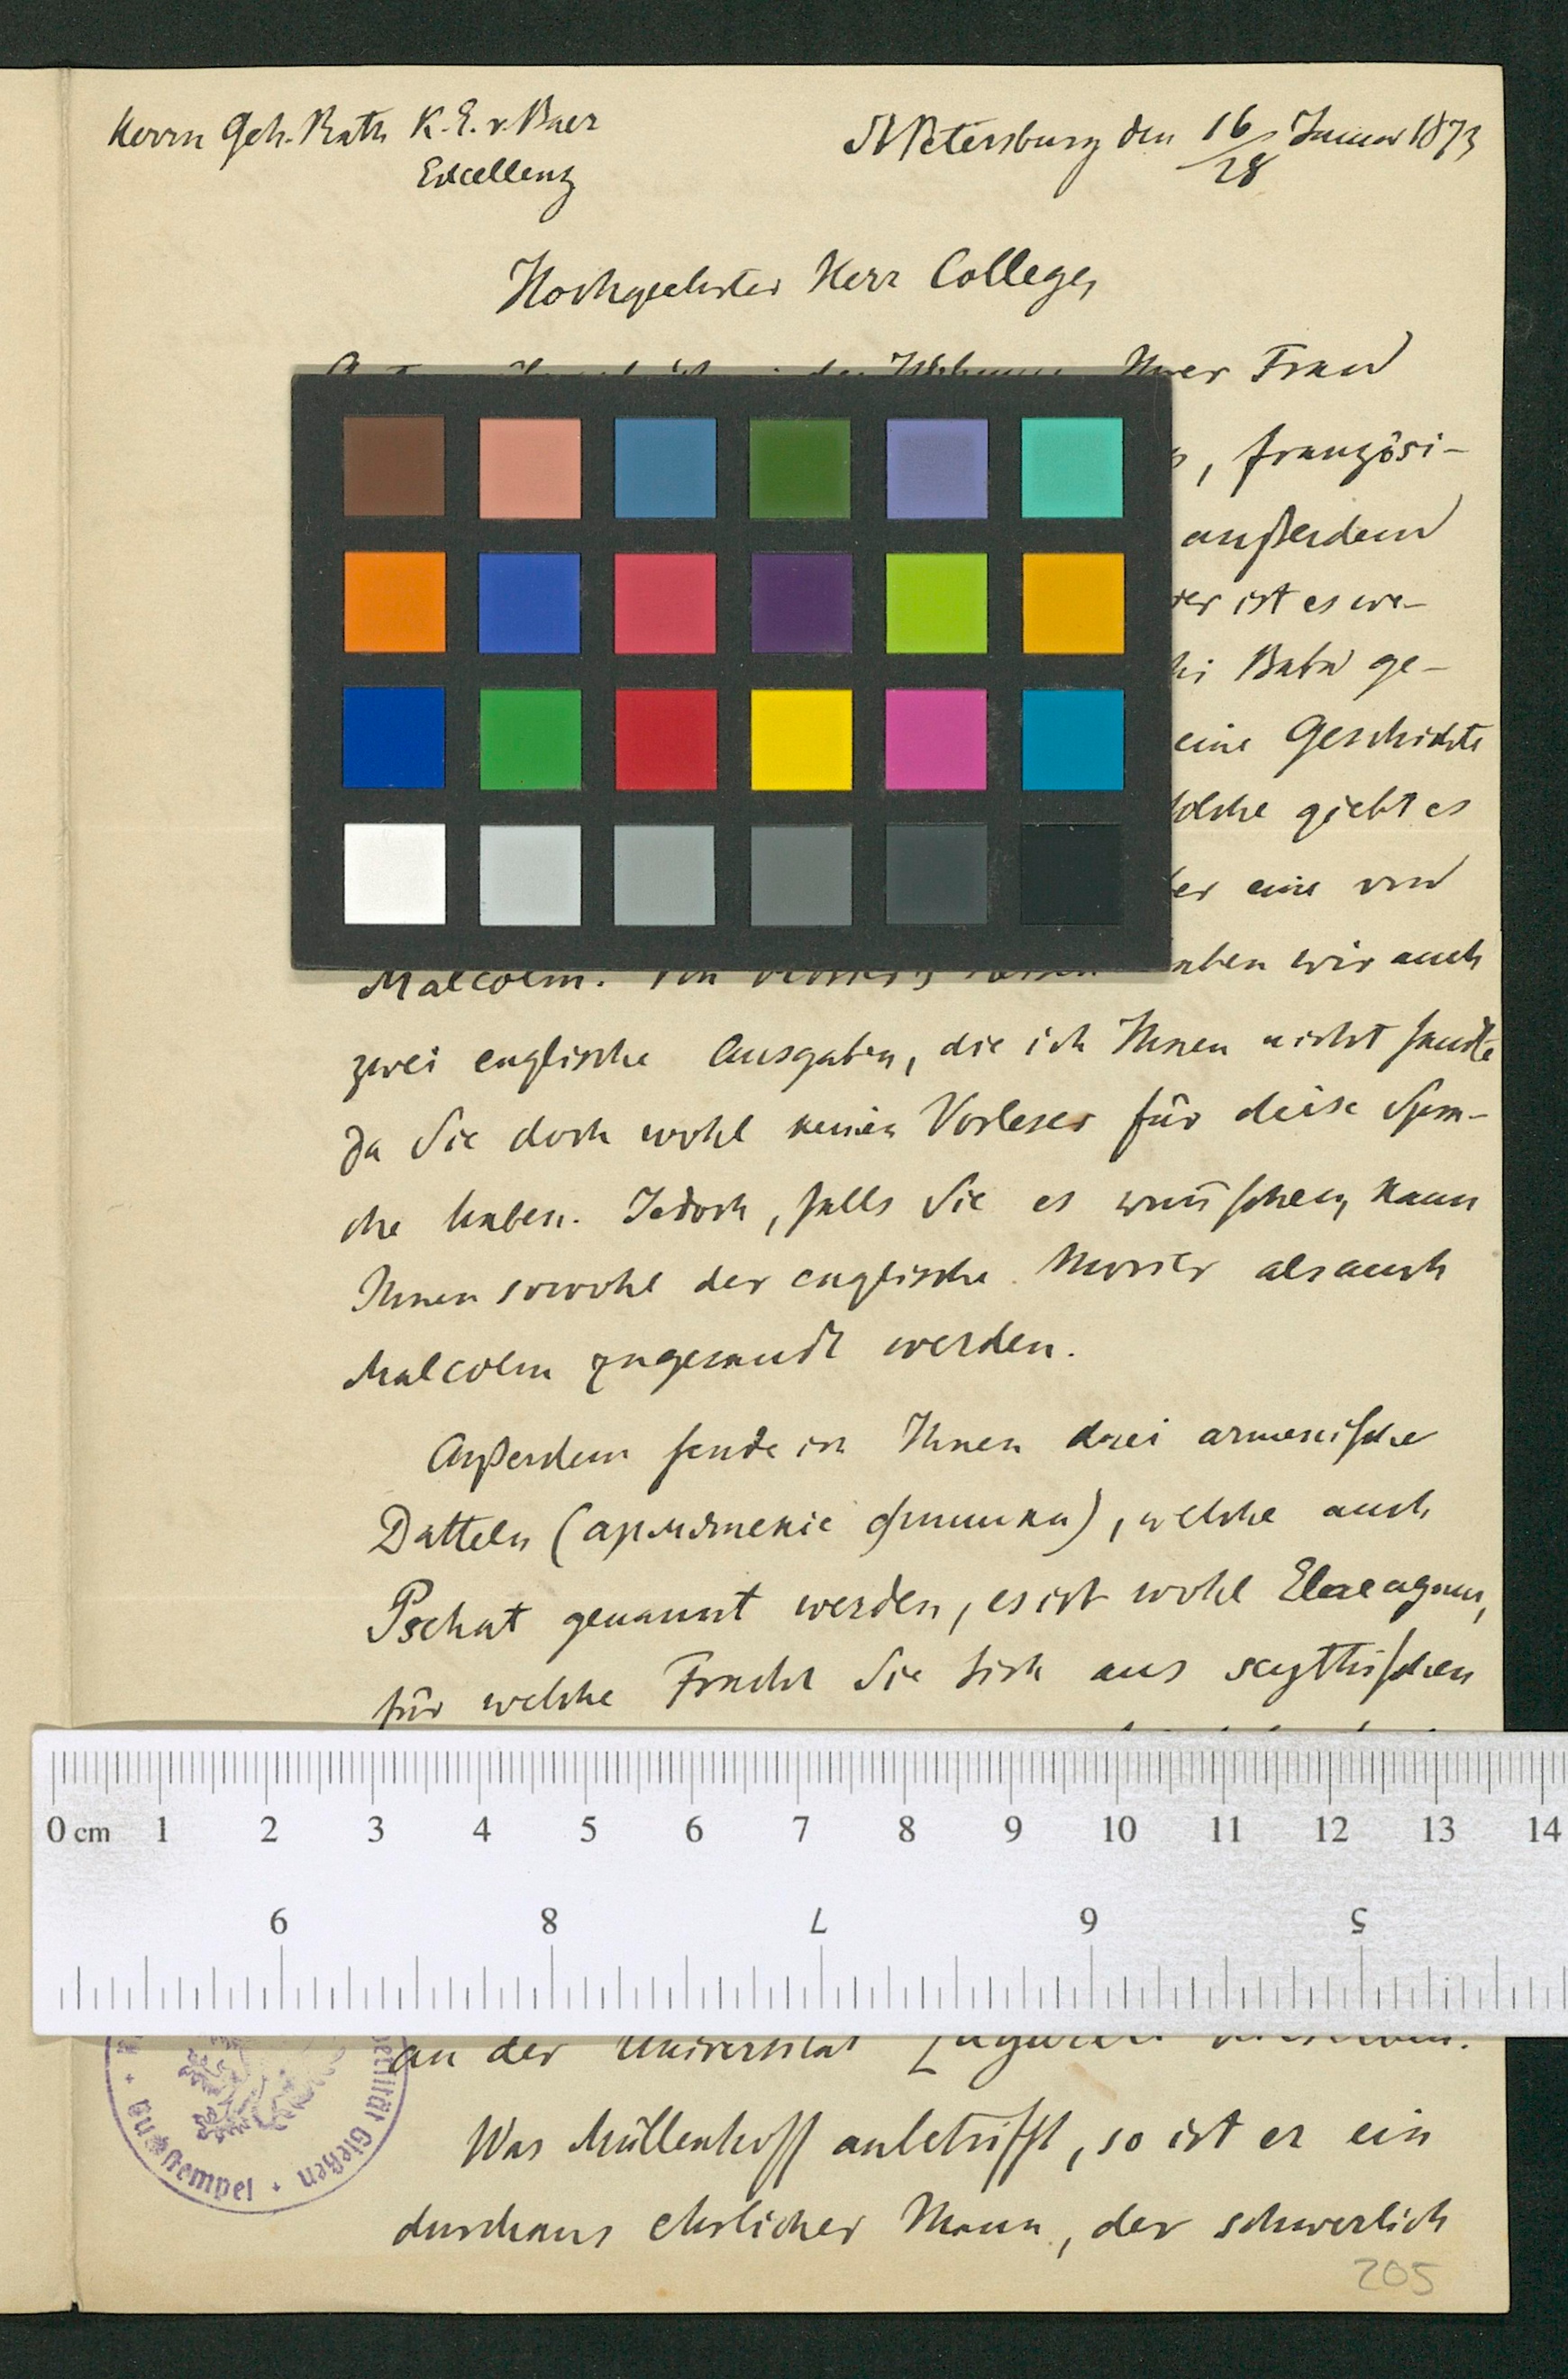 Herrn Geh. Rath K. E. v. Baer
Excellenz
St Petersburg den 16/28 Januar 1873
Hochgeehrter Herr College,
Ihrer Frau
, französi-
außerdem
ist es we-
Baba ge-
eine Geschichte
solche giebt es
eine von
Malcolm. Von haben wir auch
zwei englische Ausgaben, die ich Ihnen nicht sandte
da Sie doch wohl keinen Vorleser für diese Spra-
che haben. Jedoch, falls Sie es wünschen, kann
Ihnen sowohl der englische Morier als auch
Malcolm zugesandt werden.
Außerdem sende ich Ihnen drei armenische
Datteln (армянскіе финики), welche auch
Pschat genannt werden, es ist wohl Elaeagnus,
für welche Frucht Sie sich aus scythischen
0 cm 1 2 3 4 5 6 7 8 9 10 11 12 13 14
9 8 7 6 5
an der Universität
Was Müllenhoff anbetrifft, so ist er ein
durchaus ehrlicher Mann, der schwerlich
205
Gießen